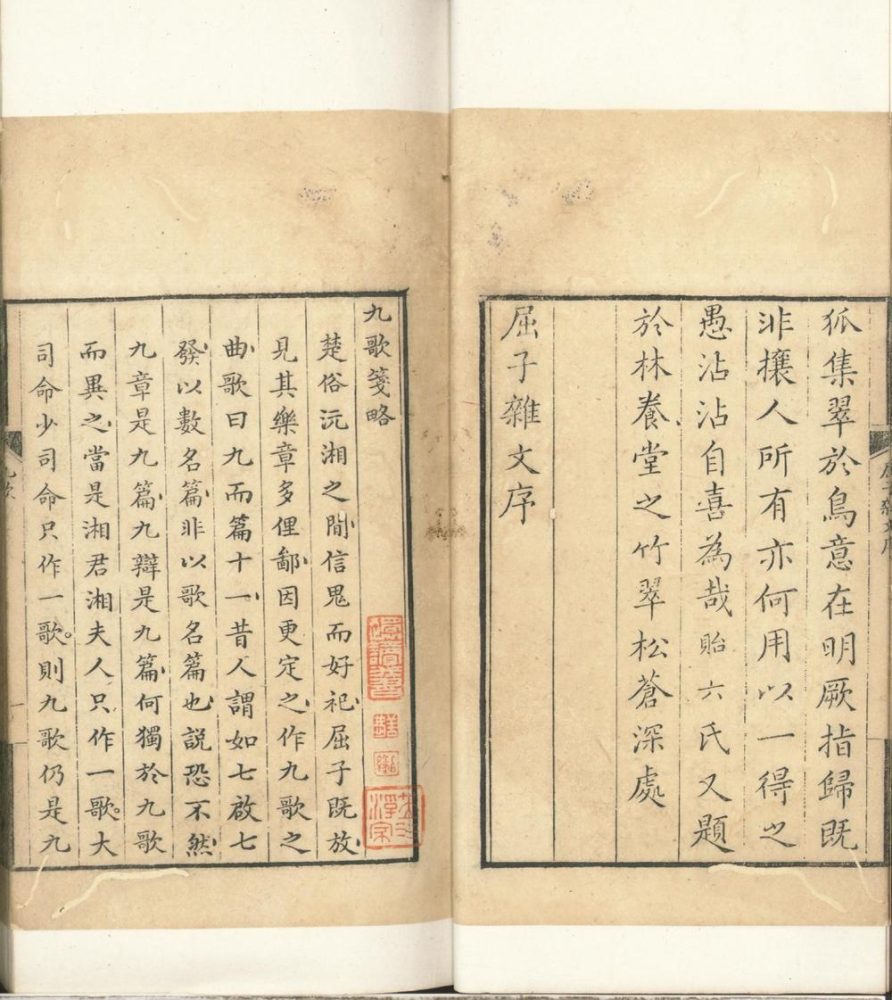 狐集翠於鳥意在明厥指歸既
非攘人所有亦何用以一得之
愚沾沾自喜為哉貽六氏又題
於林養堂之竹翠松蒼深處
屈子雜文序
九歌箋略
楚俗沅湘之間信鬼而好祀屈子既放
見其樂章多俚鄙因更定之作九歌之
曲歌曰九而篇十一昔人謂如七啟七
發以數名篇非以歌名篇也說恐不然
九章是九篇九辯是九篇何獨於九歌
而異之當是湘君湘夫人只作一歌大
司命少司命只作一歌則九歌仍是九